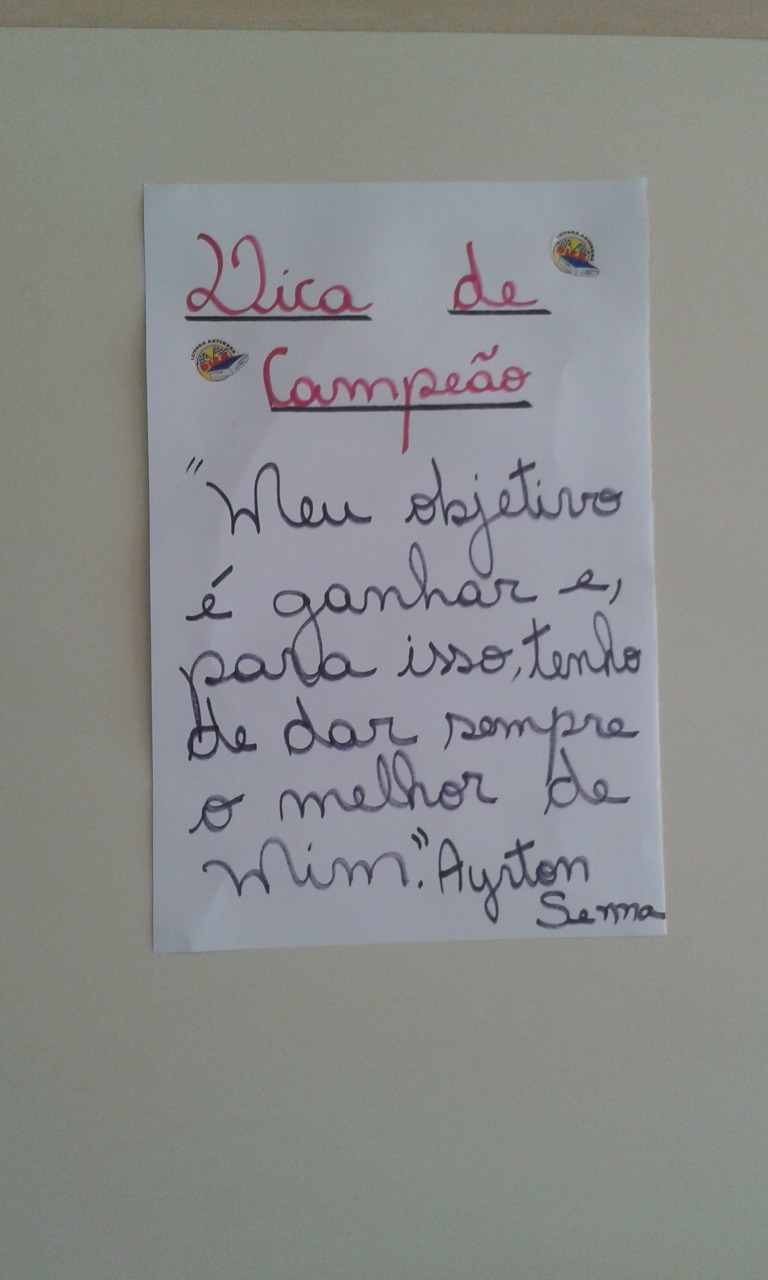 Dica de
Campeão
"Meu objetivo
é ganhar e,
para isso, tenho
de dar sempre
o melhor de
Mim." Ayrton
Senna